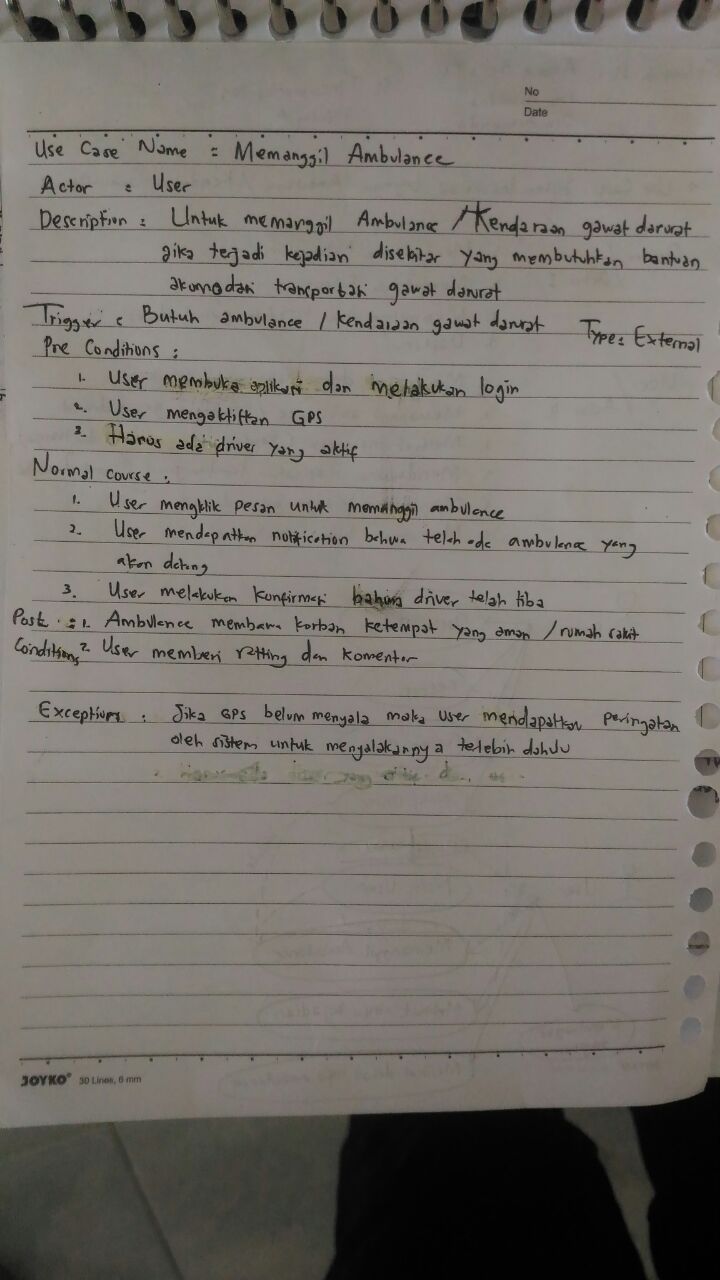 No
Date
Use Case Name : Memanggil Ambulance
Actor : User
Description : Untuk memanggil Ambulance / Kendaraan gawat darurat
jika terjadi kejadian disekitar yang membutuhkan bantuan
akomodasi transportasi gawat darurat
Trigger : Butuh ambulance / kendaraan gawat darurat Type : External
Pre Conditions :
1. User membuka aplikasi dan melakukan login
2. User mengaktifkan GPS
3. Harus ada driver yang aktif
Normal course :
1. User mengklik pesan untuk memanggil ambulance
2. User mendapatkan notification bahwa telah ada ambulance yang
akan datang
3. User melakukan konfirmasi bahwa driver telah tiba
Post : 1. Ambulance membawa korban ketempat yang aman / rumah sakit
Conditions 2. User memberi ratting dan komentar
Exceptions : Jika GPS belum menyala maka user mendapatkan peringatan
oleh sistem untuk menyalakannya telebih dahulu
JOYKO® 30 Lines, 6 mm